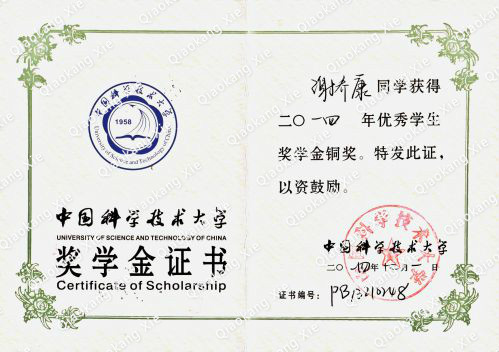 中国科学技术大学
1958
University of Science and Technology of China
中国科学技术大学
UNIVERSITY OF SCIENCE AND TECHNOLOGY OF CHINA
奖学金证书
Certificate of Scholarship
谢乔康 同学获得
二〇一四 年优秀学生
奖学金铜奖。特发此证，
以资鼓励。
中国科学技术大学
中国科学技术大学
二〇一四年十二月一日
证书编号：
Qiaokang Xie